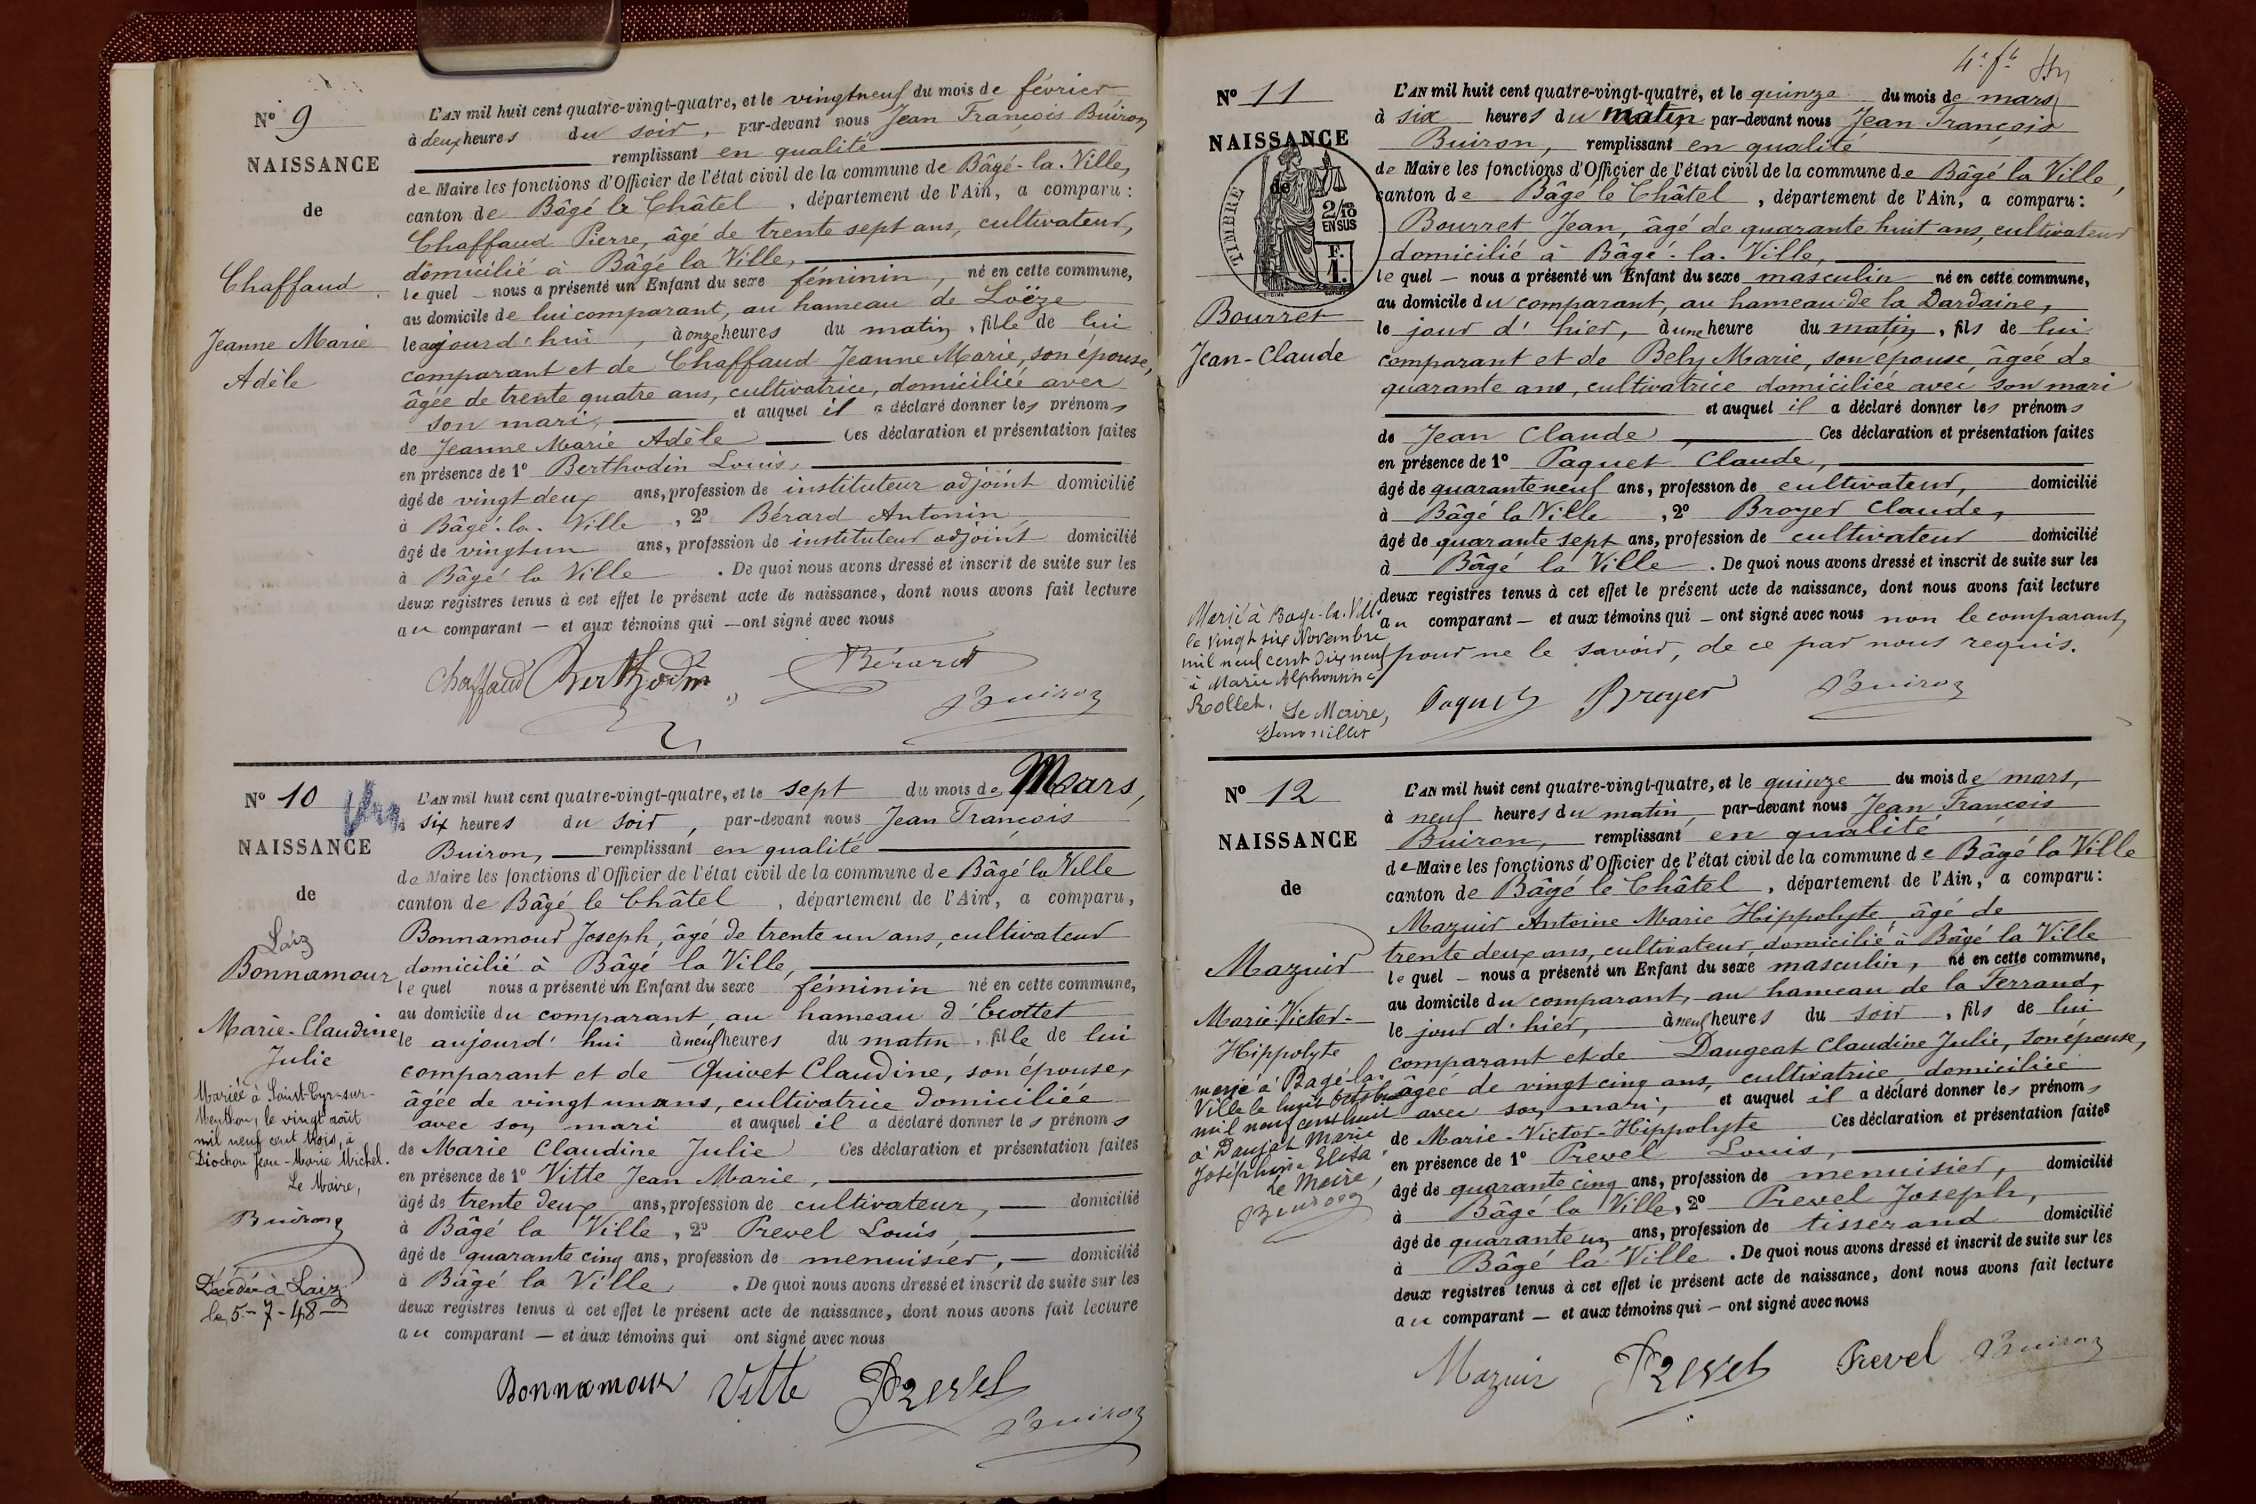 N° 9
NAISSANCE
de
Chaffaud
Jeanne Marie
Adèle
L'AN mil huit cent quatre-vingt-quatre, et le vingtneuf du mois de février
à deux heures du soir, par-devant nous Jean François Buiron
remplissant en qualité
de Maire les fonctions d'Officier de l'état civil de la commune de Bâgé-la-Ville,
canton de Bâgé le Châtel, département de l'Ain, a comparu :
Chaffaud Pierre, âgé de trente sept ans, cultivateur,
domicilié à Bâgé la Ville,
lequel nous a présenté un Enfant du sexe féminin, né en cette commune,
au domicile de lui comparant, au hameau de Loëze
le aujourd'hui, à onze heures du matin, fille de lui
comparant et de Chaffaud Jeanne Marie, son épouse,
âgée de trente quatre ans, cultivatrice, domiciliée avec
son mari, et auquel il a déclaré donner les prénoms
de Jeanne Marie Adèle Ces déclaration et présentation faites
en présence de 1° Berthodin Louis,
âgé de vingt deux ans, profession de instituteur adjoint domicilié
à Bâgé-la-Ville, 2° Bérard Antonin
âgé de vingtun ans, profession de instituteur adjoint domicilié
à Bâgé la Ville. De quoi nous avons dressé et inscrit de suite sur les
deux registres tenus à cet effet le présent acte de naissance, dont nous avons fait lecture
au comparant — et aux témoins qui — ont signé avec nous
Chaffaud Berthodin Bérard
Buiron
N° 10
NAISSANCE
de
Laiz
Bonnamour
Marie-Claudine
Julie
Mariée à Saint-Cyr-sur-
Menthon, le vingt août
mil neuf cent trois, à
Diochon Jean-Marie Michel.
Le Maire,
Buiron
Décédée à Laiz
le 5-7-48
L'AN mil huit cent quatre-vingt-quatre, et le sept du mois de Mars,
à six heures du soir, par-devant nous Jean François
Buiron, remplissant en qualité
de Maire les fonctions d'Officier de l'état civil de la commune de Bâgé la Ville
canton de Bâgé le Châtel, département de l'Ain, a comparu,
Bonnamour Joseph, âgé de trente un ans, cultivateur
domicilié à Bâgé la Ville,
lequel nous a présenté un Enfant du sexe féminin né en cette commune,
au domicile du comparant au hameau d'Ecottet
le aujourd'hui à neuf heures du matin, fille de lui
comparant et de Quivet Claudine, son épouse,
âgée de vingt un ans, cultivatrice domiciliée
avec son mari et auquel il a déclaré donner les prénoms
de Marie Claudine Julie Ces déclaration et présentation faites
en présence de 1° Vitte Jean Marie,
âgé de trente deux ans, profession de cultivateur, domicilié
à Bâgé la Ville, 2° Prevel Louis,
âgé de quarante cinq ans, profession de menuisier, domicilié
à Bâgé la Ville. De quoi nous avons dressé et inscrit de suite sur les
deux registres tenus à cet effet le présent acte de naissance, dont nous avons fait lecture
au comparant — et aux témoins qui ont signé avec nous
Bonnamour Vitte Prevel
Buiron
4e ft
N° 11
NAISSANCE
de
TIMBRE
2/10
EN SUS
F.
1.
Bourret
Jean-Claude
Marié à Bagé-la-Ville
le vingt six Novembre
mil neuf cent dix neuf
à Marie Alphonsine
Rollet.
Le Maire,
L'AN mil huit cent quatre-vingt-quatre, et le quinze du mois de mars
à six heures du matin par-devant nous Jean François
Buiron, remplissant en qualité
de Maire les fonctions d'Officier de l'état civil de la commune de Bâgé la Ville,
canton de Bâgé le Châtel, département de l'Ain, a comparu :
Bourret Jean, âgé de quarante huit ans, cultivateur
domicilié à Bâgé-la-Ville,
lequel — nous a présenté un Enfant du sexe masculin né en cette commune,
au domicile du comparant, au hameau de la Dardaine,
le jour d'hier, à une heure du matin, fils de lui
comparant et de Bely Marie, son épouse, âgée de
quarante ans, cultivatrice domiciliée avec son mari
et auquel il a déclaré donner les prénoms
de Jean Claude, Ces déclaration et présentation faites
en présence de 1° Paquet Claude,
âgé de quarante neuf ans, profession de cultivateur, domicilié
à Bâgé la Ville, 2° Broyer Claude,
âgé de quarante sept ans, profession de cultivateur domicilié
à Bâgé la Ville. De quoi nous avons dressé et inscrit de suite sur les
deux registres tenus à cet effet le présent acte de naissance, dont nous avons fait lecture
au comparant — et aux témoins qui — ont signé avec nous non le comparant,
pour ne le savoir, de ce par nous requis.
Paquet Broyer Buiron
N° 12
NAISSANCE
de
Mazuir
Marie-Victor-
Hippolyte
marié à Bagé-la-
Ville le huit octobre
mil neuf cent huit
à Danjat Marie
Joséphine Elisa
Le Maire,
Buiron
L'AN mil huit cent quatre-vingt-quatre, et le quinze du mois de mars,
à neuf heures du matin, par-devant nous Jean François
Buiron, remplissant en qualité
de Maire les fonctions d'Officier de l'état civil de la commune de Bâgé la Ville
canton de Bâgé le Châtel, département de l'Ain, a comparu :
Mazuir Antoine Marie Hippolyte, âgé de
trente deux ans, cultivateur, domicilié à Bâgé la Ville
lequel — nous a présenté un Enfant du sexe masculin, né en cette commune,
au domicile du comparant, au hameau de la Ferrand,
le jour d'hier, à neuf heures du soir, fils de lui
comparant et de Daugeat Claudine Julie, son épouse,
âgée de vingt cinq ans, cultivatrice domiciliée
avec son mari, et auquel il a déclaré donner les prénoms
de Marie-Victor-Hippolyte Ces déclaration et présentation faites
en présence de 1° Prevel Louis,
âgé de quarante cinq ans, profession de menuisier, domicilié
à Bâgé la Ville, 2° Prevel Joseph,
âgé de quarante un ans, profession de tisserand domicilié
à Bâgé la Ville. De quoi nous avons dressé et inscrit de suite sur les
deux registres tenus à cet effet le présent acte de naissance, dont nous avons fait lecture
au comparant — et aux témoins qui — ont signé avec nous
Mazuir Prevel Prevel Buiron